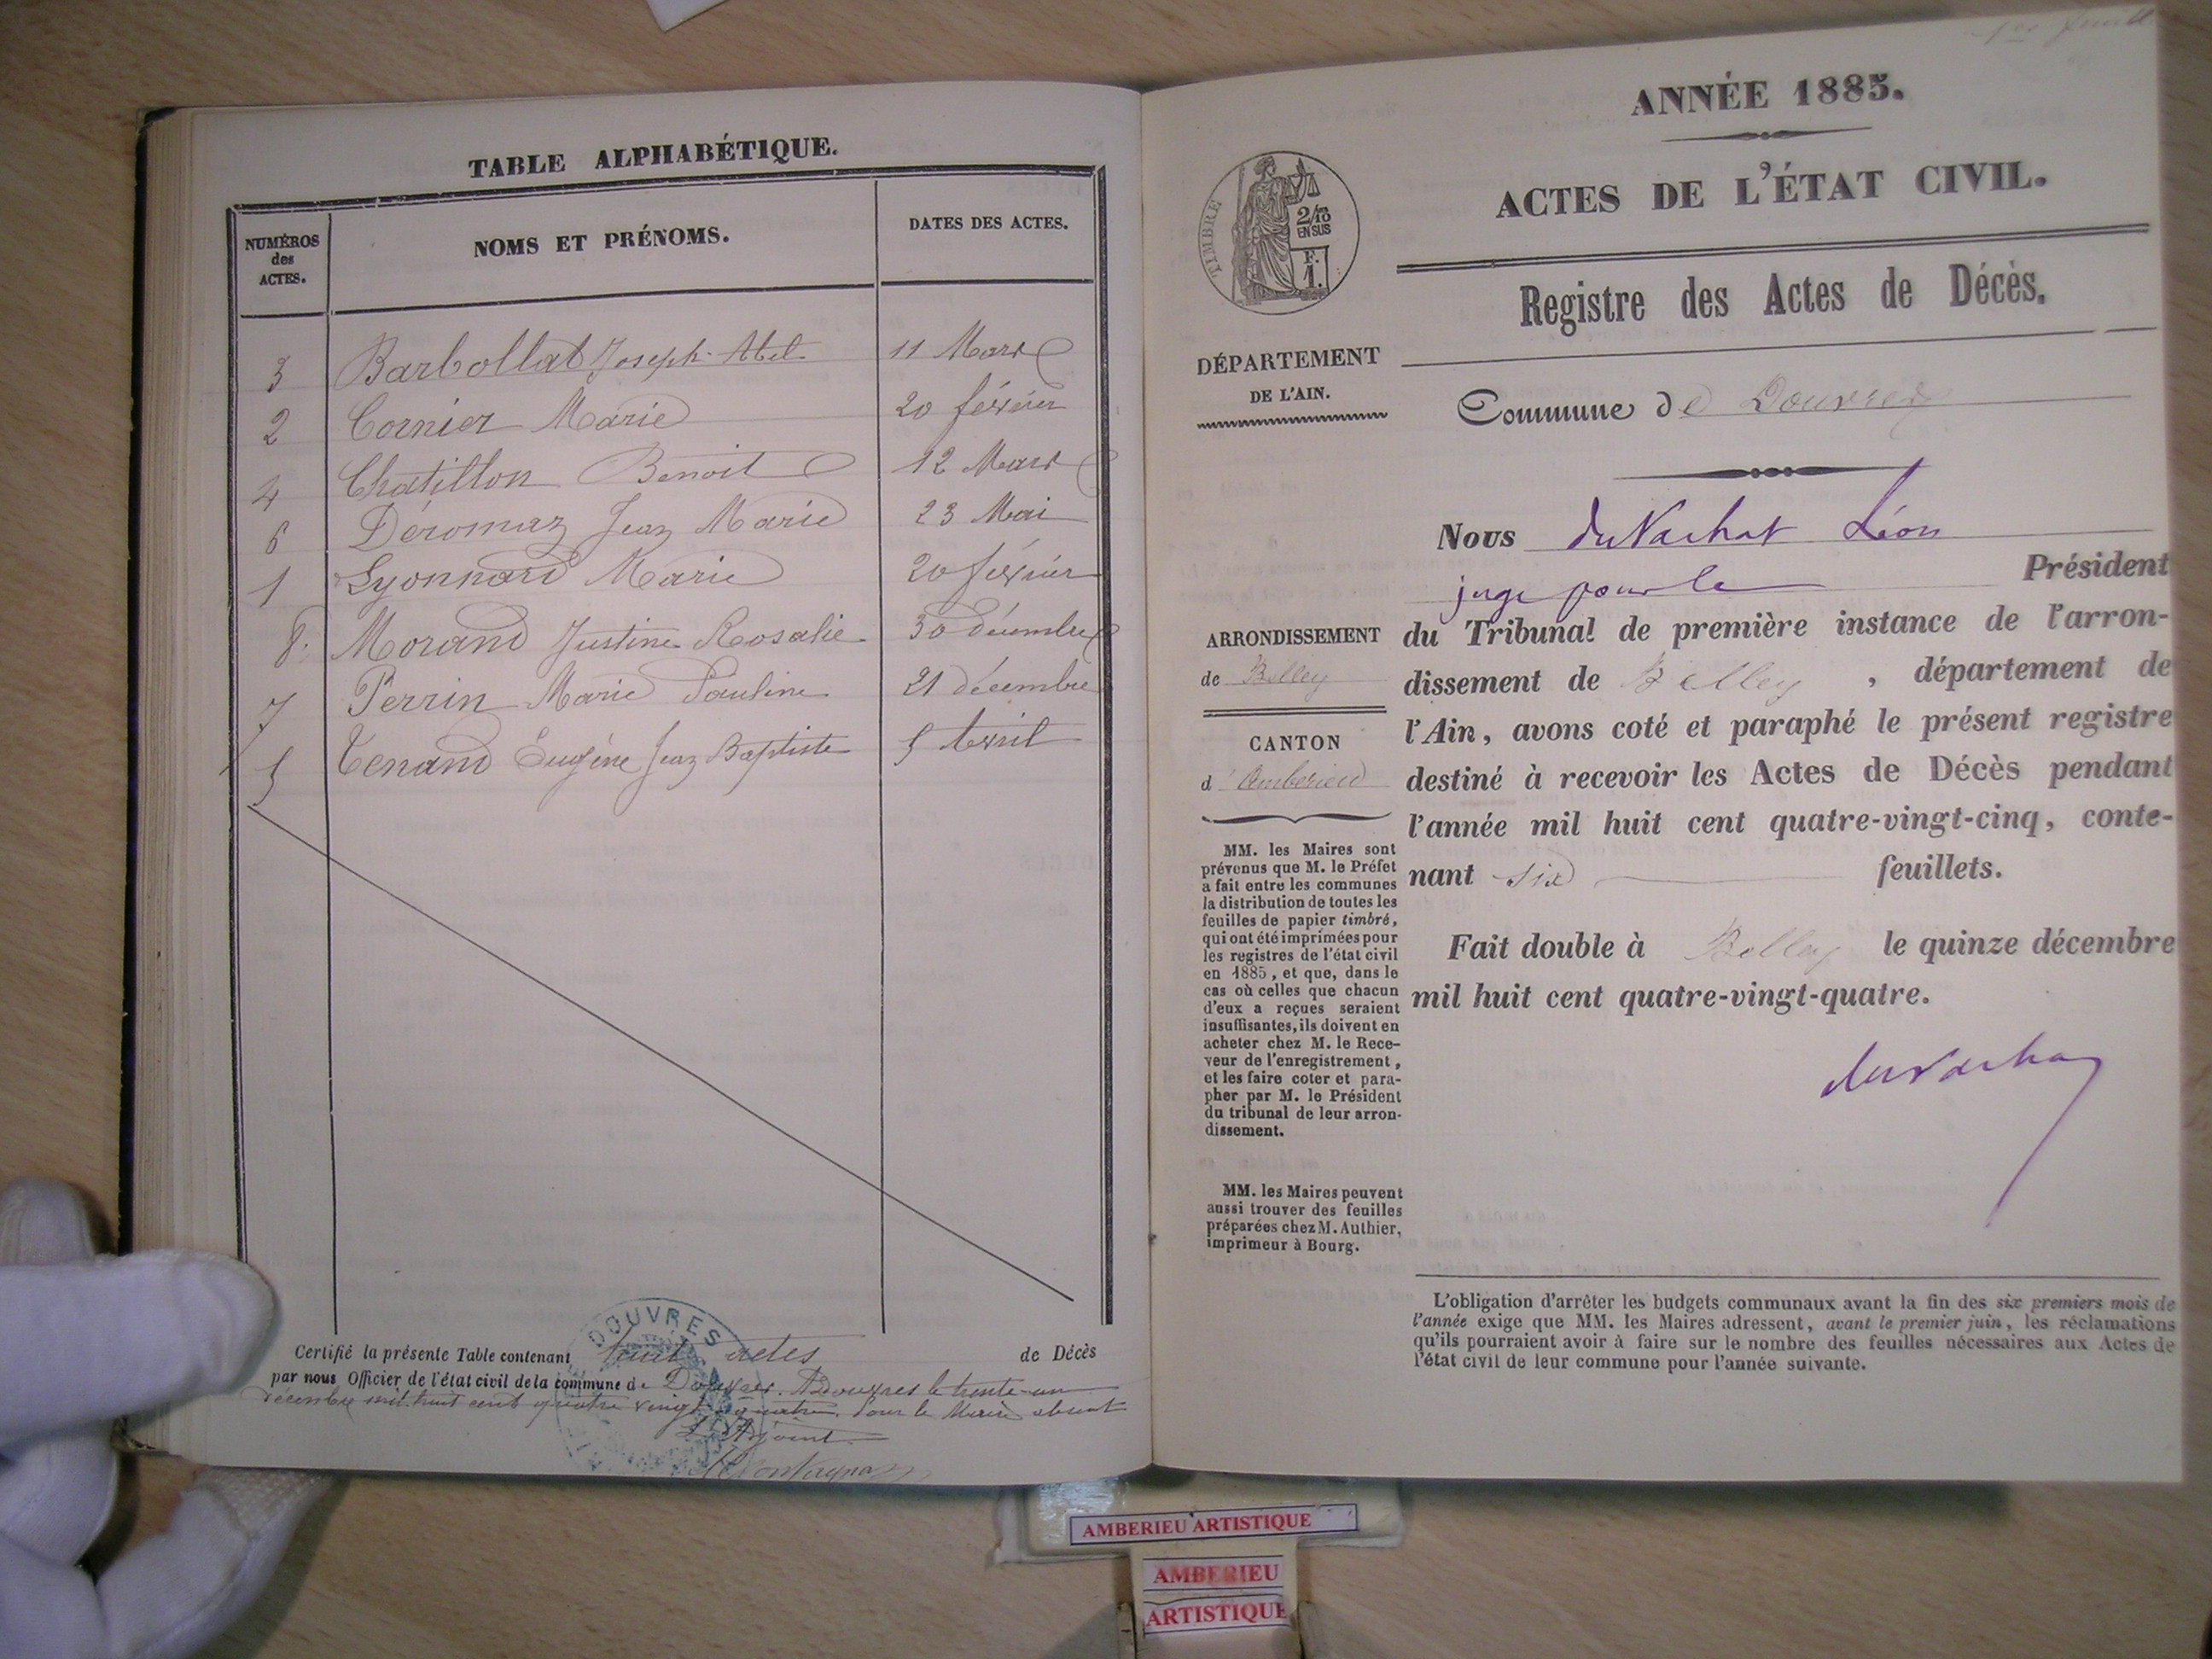 TABLE ALPHABÉTIQUE.
NUMÉROS des ACTES. NOMS ET PRÉNOMS. DATES DES ACTES.
3 Barbollat Joseph Abel 11 Mars
2 Cornier Marie 20 février
4 Chatillon Benoit 12 Mars
6 Déromaz Jean Marie 23 Mai
1 Lyonnard Marie 20 février
8. Morand Justine Rosalie 30 décembre
7 Perrin Marie Pauline 21 décembre
5 Tenand Eugène Jean Baptiste 5 Avril
DOUVRES
Certifié la présente Table contenant huit actes de Décès
par nous Officier de l'état civil de la commune de Douvres. A Douvres le trente-un
décembre mil huit cent quatre vingt quatre. Pour le Maire absent
L'Adjoint
ANNÉE 1885.
ACTES DE L'ÉTAT CIVIL.
TIMBRE
2/10 EN SUS
F. 1.
Registre des Actes de Décès.
DÉPARTEMENT
DE L'AIN.
Commune de Douvres
Nous duVachat Léon
juge pour le Président
du Tribunal de première instance de l'arron-
dissement de Belley, département de
l'Ain, avons coté et paraphé le présent registre
destiné à recevoir les Actes de Décès pendant
l'année mil huit cent quatre-vingt-cinq, conte-
nant six feuillets.
Fait double à Belley le quinze décembre
mil huit cent quatre-vingt-quatre.
duVachat
ARRONDISSEMENT
de Belley
CANTON
d'Ambérieu
MM. les Maires sont
prévenus que M. le Préfet
a fait entre les communes
la distribution de toutes les
feuilles de papier timbré,
qui ont été imprimées pour
les registres de l'état civil
en 1885, et que, dans le
cas où celles que chacun
d'eux a reçues seraient
insuffisantes, ils doivent en
acheter chez M. le Rece-
veur de l'enregistrement,
et les faire coter et para-
pher par M. le Président
du tribunal de leur arron-
dissement.
MM. les Maires peuvent
aussi trouver des feuilles
préparées chez M. Authier,
imprimeur à Bourg.
L'obligation d'arrêter les budgets communaux avant la fin des six premiers mois de
l'année exige que MM. les Maires adressent, avant le premier juin, les réclamations
qu'ils pourraient avoir à faire sur le nombre des feuilles nécessaires aux Actes de
l'état civil de leur commune pour l'année suivante.
AMBERIEU ARTISTIQUE
AMBERIEU
ARTISTIQUE